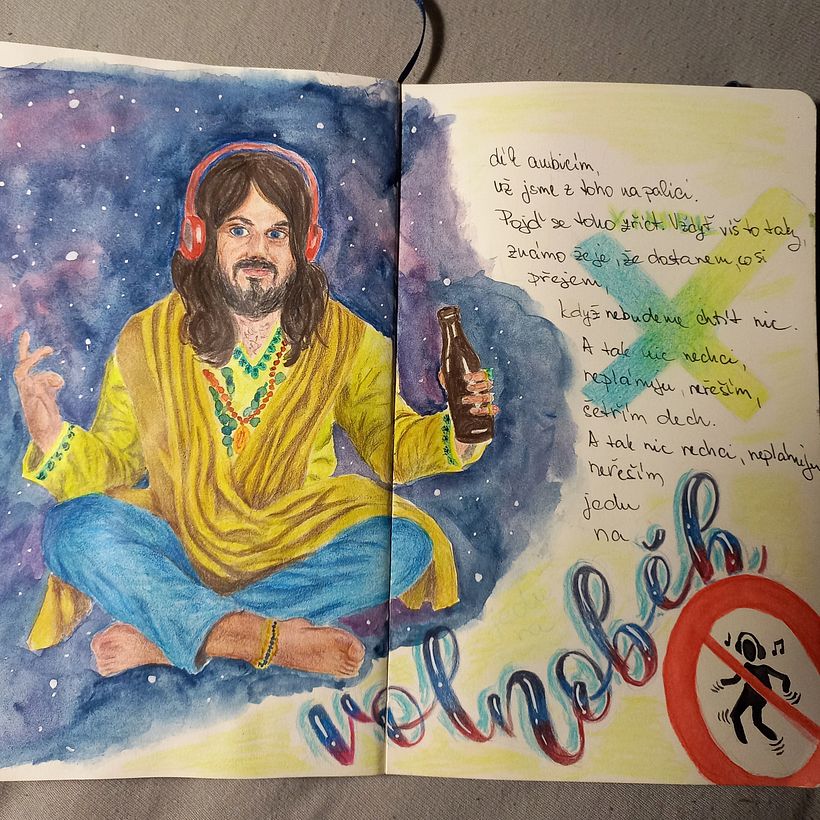 dík ambicím,
už jsme z toho na palici.
Pojď se toho zříct, když víš to taky,
známo že je, že dostanem, co si
přejem,
když nebudeme chtít nic.
A tak nic nechci,
neplánuju, neřeším,
šetřím dech.
A tak nic nechci, neplánuju
neřeším
jedu
na
volnoběh